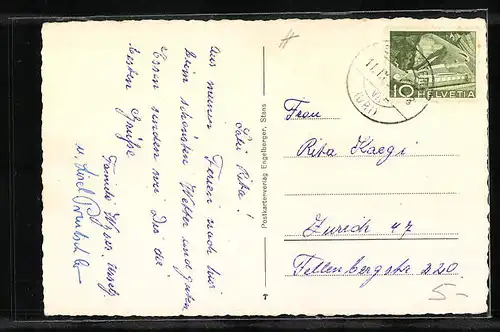 Sali Rita!
Aus meinen Ferien noch hier
beim schönsten Wetter und guten
Essen senden wir Dir die
besten Grüsse
Familie Wyser
u.
Postkartenverlag Engelberger, Stans
10 HELVETIA
(URI)
Frau
Rita Kaegi
Zürich 47
Fellenbergstr 220
5-